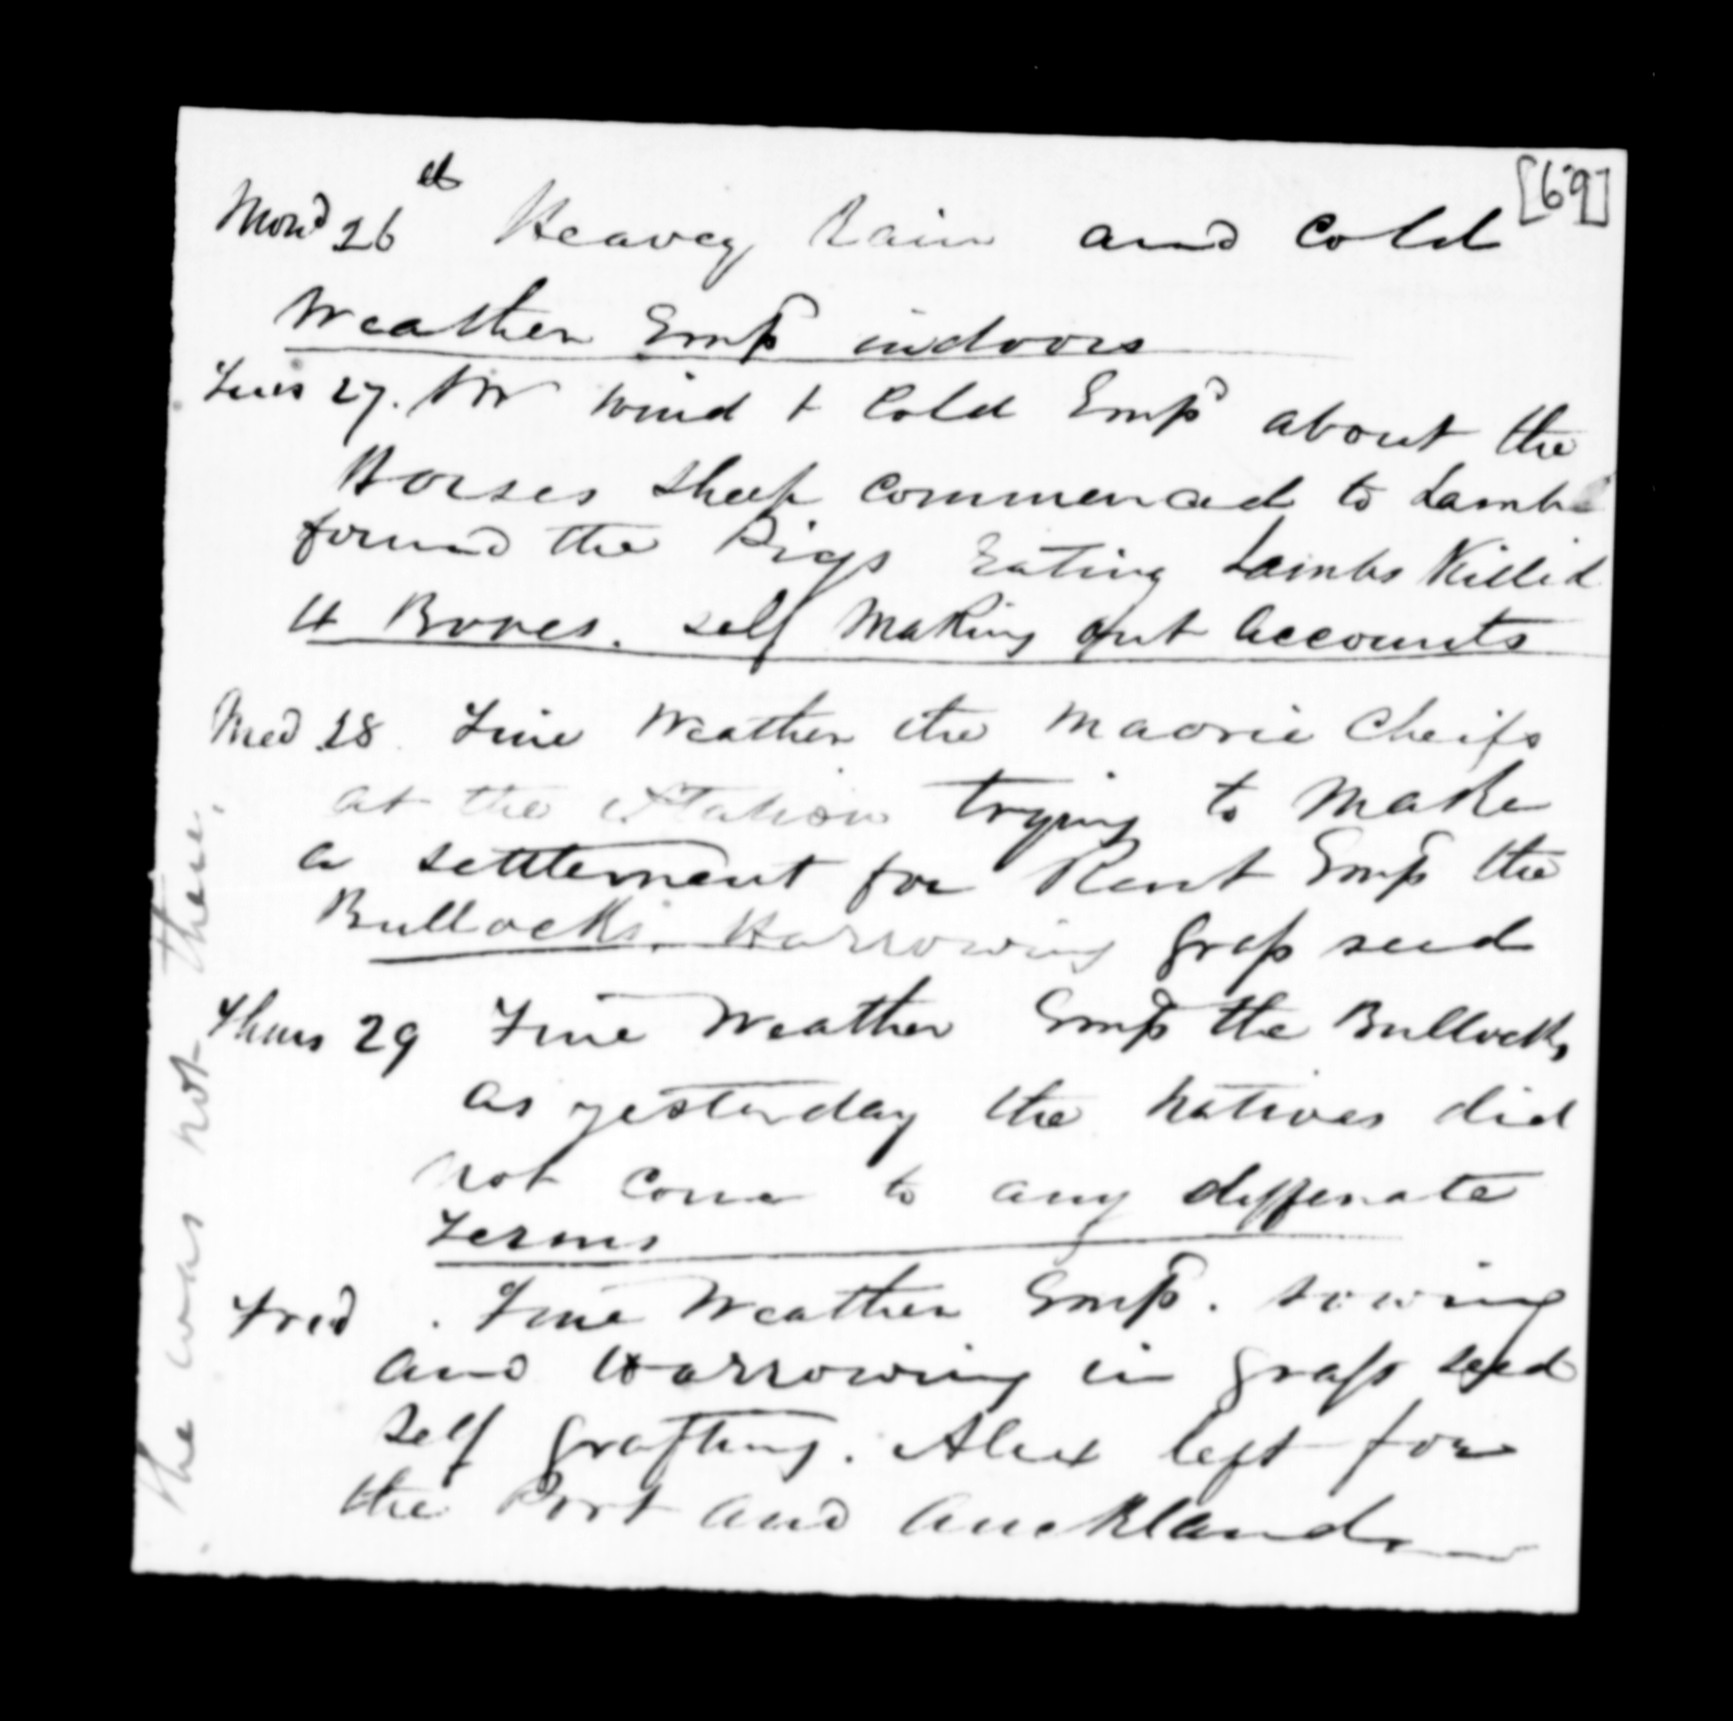 [69]
Mond 26th Heavey Rain and Cold
Weather Empd indoors
Tues 27. NW Wind & Cold Empd about the
Horses Sheep Commenced to Lamb
found the Pigs Eating Lambs Killed
4 Bores. self Making out accounts
Wed 28 Fine Weather the Maorie Cheifs
at the Station trying to Make
a settlement for Rent Empd the
Bullocks. Harrowing Grass seed
Thurs 29 Fine Weather Empd the Bullocks
as yesterday the Natives did
not Come to any diffenate
Terms
Frid . Fine Weather Empd. sowing
and Harrowing in Grass seed
self grafting. Alex left for
the Port and Auckland
he was not there.